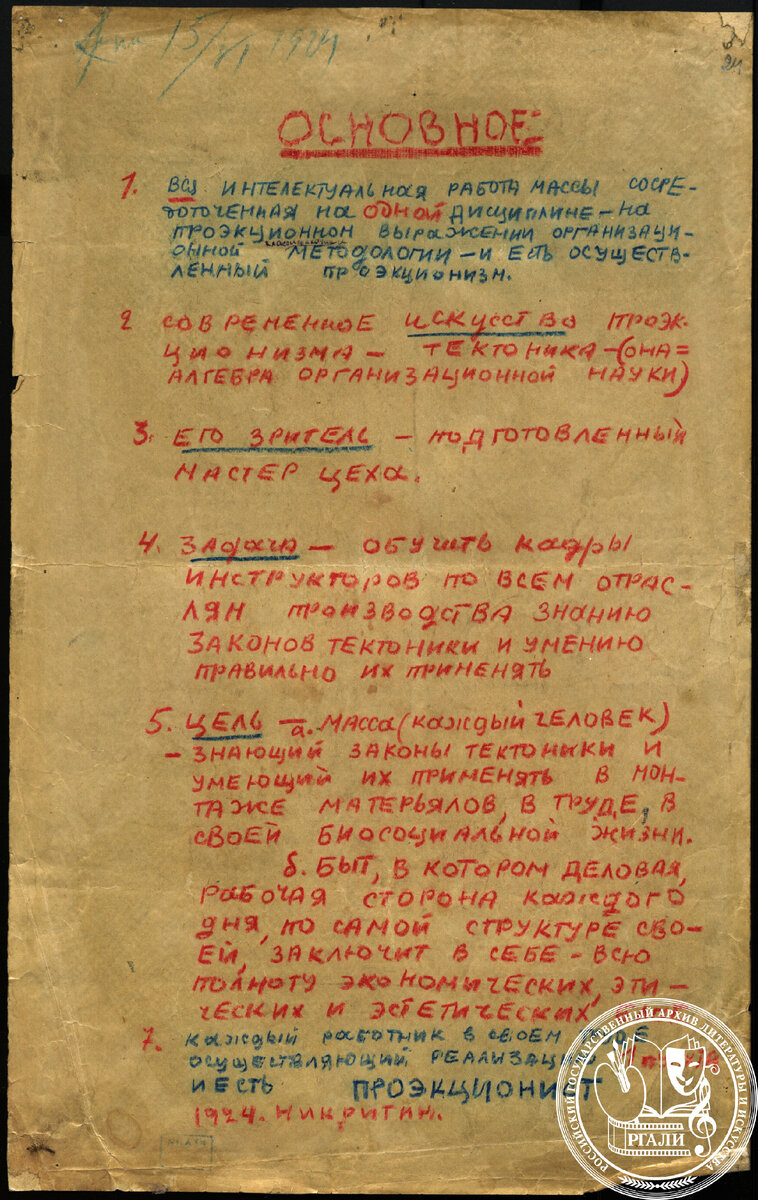 15/VI 1924
24
ОСНОВНОЕ:
1. ВСЯ ИНТЕЛЕКТУАЛЬНАЯ РАБОТА МАССЫ СОСРЕ-
ДОТОЧЕННАЯ НА ОДНОЙ ДИСЦИПЛИНЕ – НА
ПРОЭКЦИОННОМ ВЫРАЖЕНИИ ОРГАНИЗАЦИ-
ОННОЙ МЕТОДОЛОГИИ – И ЕСТЬ ОСУЩЕСТВ-
ЛЕННЫЙ ПРОЭКЦИОНИЗМ.
2 СОВРЕМЕННОЕ ИСКУССТВО ПРОЭК-
ЦИОНИЗМА – ТЕКТОНИКА – (ОНА =
АЛГЕБРА ОРГАНИЗАЦИОННОЙ НАУКИ)
3. ЕГО ЗРИТЕЛЬ – ПОДГОТОВЛЕННЫЙ
МАСТЕР ЦЕХА.
4. ЗАДАЧА – ОБУЧИТЬ КАДРЫ
ИНСТРУКТОРОВ ПО ВСЕМ ОТРАС-
ЛЯМ ПРОИЗВОДСТВА ЗНАНИЮ
ЗАКОНОВ ТЕКТОНИКИ И УМЕНИЮ
ПРАВИЛЬНО ИХ ПРИМЕНЯТЬ
5. ЦЕЛЬ – а. МАССА (КАЖДЫЙ ЧЕЛОВЕК)
– ЗНАЮЩИЙ ЗАКОНЫ ТЕКТОНИКИ И
УМЕЮЩИЙ ИХ ПРИМЕНЯТЬ В МОН-
ТАЖЕ МАТЕРЬЯЛОВ, В ТРУДЕ, В
СВОЕЙ БИОСОЦИАЛЬНОЙ ЖИЗНИ.
б. БЫТ, В КОТОРОМ ДЕЛОВАЯ,
РАБОЧАЯ СТОРОНА КАЖДОГО
ДНЯ, ПО САМОЙ СТРУКТУРЕ СВО-
ЕЙ, ЗАКЛЮЧИТ В СЕБЕ – ВСЮ
ПОЛНОТУ ЭКОНОМИЧЕСКИХ, ЭТИ-
ЧЕСКИХ И ЭСТЕТИЧЕСКИХ
7. КАЖДЫЙ РАБОТНИК В СВОЕМ
ОСУЩЕСТВЛЯЮЩИЙ РЕАЛИЗАЦИЮ
И ЕСТЬ ПРОЭКЦИОНИСТ
1924. НИКРИТИН.
РОССИЙСКИЙ ГОСУДАРСТВЕННЫЙ АРХИВ ЛИТЕРАТУРЫ И ИСКУССТВА
РГАЛИ